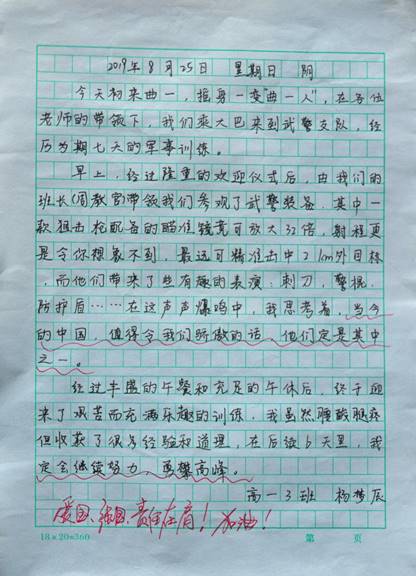 2019年8月25日 星期日 阴
今天初来曲一，摇身一变"曲一人"，在各位
老师的带领下，我们乘大巴来到武警支队，经
历为期七天的军事训练。
早上，经过隆重的欢迎仪式后，由我们的
班长(周教官)带领我们参观了武警装备，其中一
款狙击枪配备的瞄准镜竟可放大32倍，射程更
是令你想象不到，最远可精准击中2km外目标
，而他们带来了些有趣的表演：刺刀，警棍，
防护盾……在这声声爆鸣中，我思考着，当今
的中国，值得令我们骄傲的话，他们定是其中
之一。
经过丰盛的午餐和充足的午休后，终于迎
来了艰苦而充满乐趣的训练，我虽然腰酸腿疼
但收获了很多经验和道理，在后续6天里，我
定会继续努力，勇攀高峰。
高一3班 杨梦辰
爱国、强国、责任在肩！加油！
18×20=360 第 页